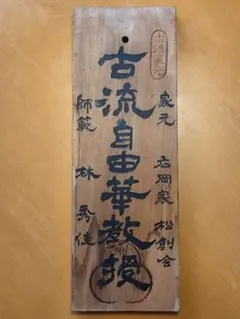 家元 石岡家 松創会
古流自由華教授
師範 林 秀佳